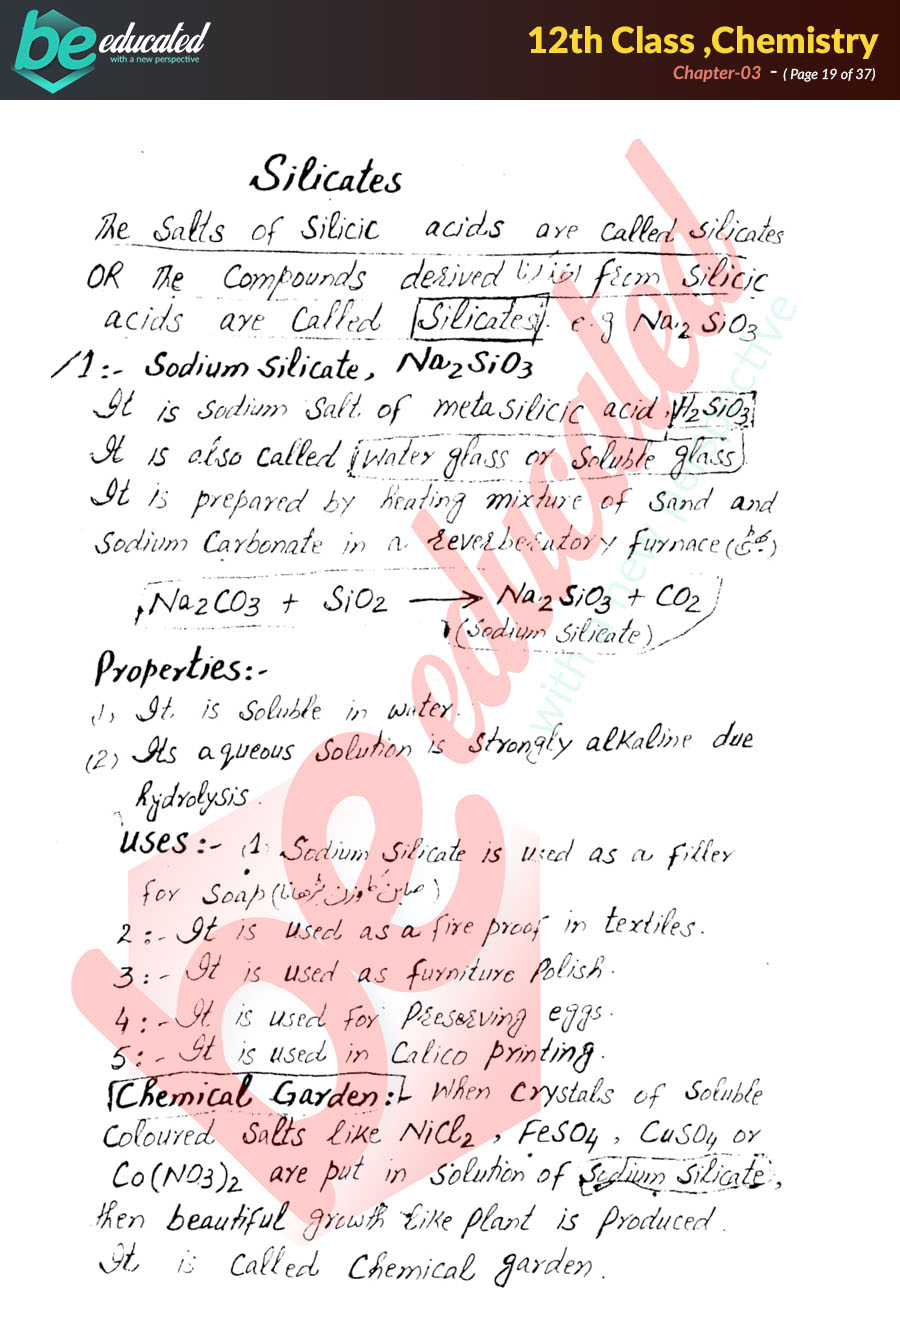 be educated
with a new perspective
12th Class ,Chemistry
Chapter-03 - ( Page 19 of 37)
Silicates
The Salts of Silicic acids are called silicates
OR The Compounds derived from Silicic
acids are Called Silicates. e.g Na2 SiO3
1:- Sodium Silicate, Na2SiO3
It is sodium Salt of metasilicic acid, H2SiO3
It is also called Water glass or Soluble glass
It is prepared by Heating mixture of Sand and
Sodium Carbonate in a reverberatory furnace (بھٹی)
Na2CO3 + SiO2 → Na2SiO3 + CO2
(Sodium Silicate)
Properties:-
(1) It is Soluble in water.
(2) Its aqueous Solution is Strongly alkaline due
hydrolysis.
Uses:- (1) Sodium Silicate is used as a filler
for Soap (صابن کا وزن بڑھانا)
2:- It is used as a fire proof in textiles.
3:- It is used as furniture Polish.
4:- It is used for Preserving eggs.
5:- It is used in Calico printing.
Chemical Garden:- When Crystals of Soluble
Coloured Salts like NiCl2, FeSO4, CuSO4 or
Co(NO3)2 are put in Solution of Sodium Silicate,
then beautiful growth like plant is Produced.
It is Called Chemical garden.
be educated
with a new perspective